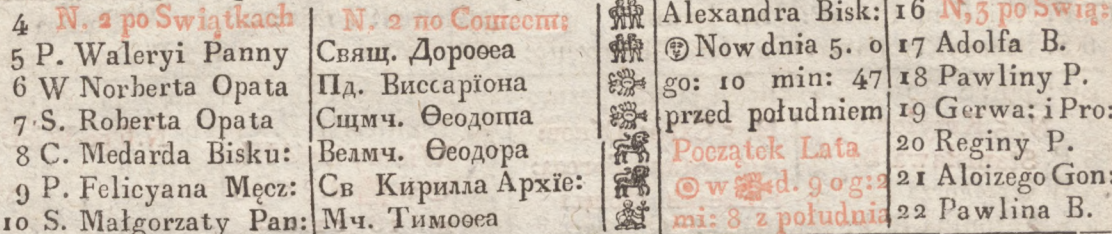 4 N. 2 po Swiątkach N. 2 по Сошест: Alexandra Bisk: 16 N, 3 po Swią:
5 P. Waleryi Panny Свящ. Дороѳеа Now dnia 5. o 17 Adolfa B.
6 W Norberta Opata Пд. Виссарїона go: 10 min: 47 18 Pawliny P.
7 S. Roberta Opata Сщмч. Ѳеодота przed południem 19 Gerwa: i Pro:
8 C. Medarda Bisku: Велмч. Ѳеодора Początek Lata 20 Reginy P.
9 P. Felicyana Męcz: Св Кирилла Архїе: ☉ w ♋ d. 9 og: 2 21 Aloizego Gon:
10 S. Małgorzaty Pan: Мч. Тимоѳеа mi: 8 z południa 22 Pawlina B.